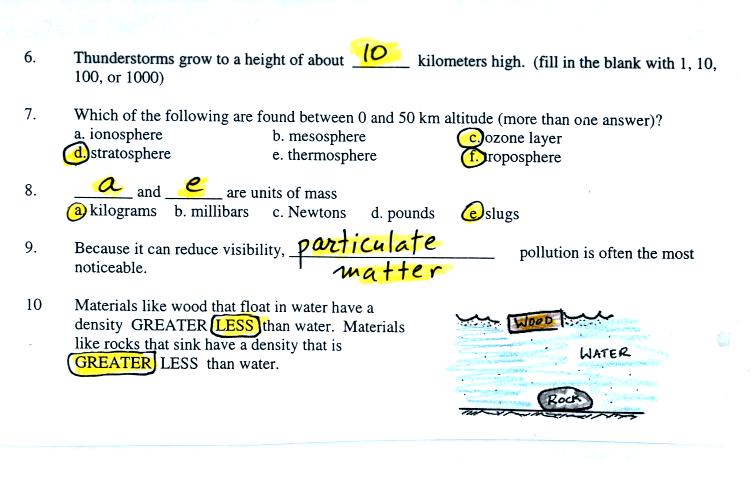 6. Thunderstorms grow to a height of about 10 kilometers high. (fill in the blank with 1, 10,
100, or 1000)
7. Which of the following are found between 0 and 50 km altitude (more than one answer)?
a. ionosphere b. mesosphere c. ozone layer
d. stratosphere e. thermosphere f. troposphere
8. a and e are units of mass
a. kilograms b. millibars c. Newtons d. pounds e. slugs
9. Because it can reduce visibility, particulate matter pollution is often the most
noticeable.
10 Materials like wood that float in water have a
density GREATER LESS than water. Materials
like rocks that sink have a density that is
GREATER LESS than water.
WOOD
WATER
ROCK